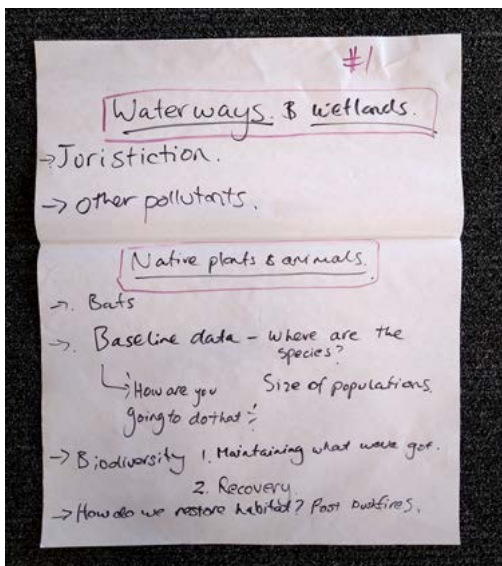 #1
Waterways. & wetlands.
→ Juristiction.
→ other pollutants.
Native plants & animals.
→. Bats
→. Baseline data – where are the
species?
How are you Size of populations.
going to do that ?
→ Biodiversity 1. Maintaining what weve got.
2. Recovery.
→ How do we restore habitat? Post bushfires.